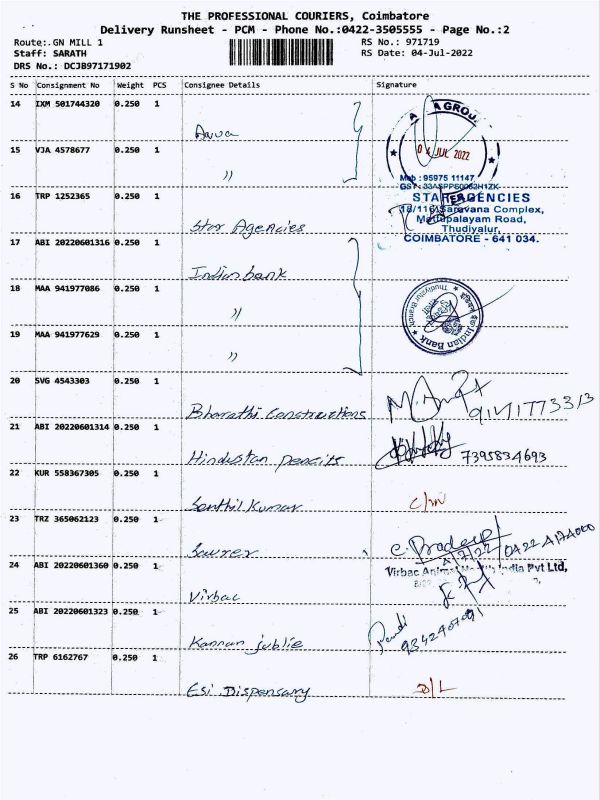 THE PROFESSIONAL COURIERS, Coimbatore
Delivery Runsheet - PCM - Phone No.:0422-3505555 - Page No.:2
Route:.GN MILL 1
RS No.: 971719
Staff: SARATH
RS Date: 04-Jul-2022
DRS No.: DCJB97171902
S No Consignment No Weight PCS Consignee Details Signature
14 IXM 501744320 0.250 1
A AGROU
15 VJA 4578677 0.250 1 〃
04 JUL 2022
Mob : 95975 11147
16 TRP 1252365 0.250 1 Star Agencies
STAR AGENCIES
18/116 Saravana Complex,
Mettupalayam Road,
Thudiyalur,
COIMBATORE - 641 034.
17 ABI 20220601316 0.250 1 Indian bank
18 MAA 941977086 0.250 1 〃
Indian Bank
Thudiyalur Branch
19 MAA 941977629 0.250 1 〃
20 SVG 4543303 0.250 1 Bharathi Constructions
21 ABI 20220601314 0.250 1 Hindustan pencils 7395834693
22 KUR 558367305 0.250 1 Senthil Kumar
23 TRZ 365062123 0.250 1 C. Pradeep
4/7/22
24 ABI 20220601360 0.250 1 Virbac
Virbac Animal Health India Pvt Ltd,
25 ABI 20220601323 0.250 1 Kannan jublie
26 TRP 6162767 0.250 1 Esi Dispensary D/L